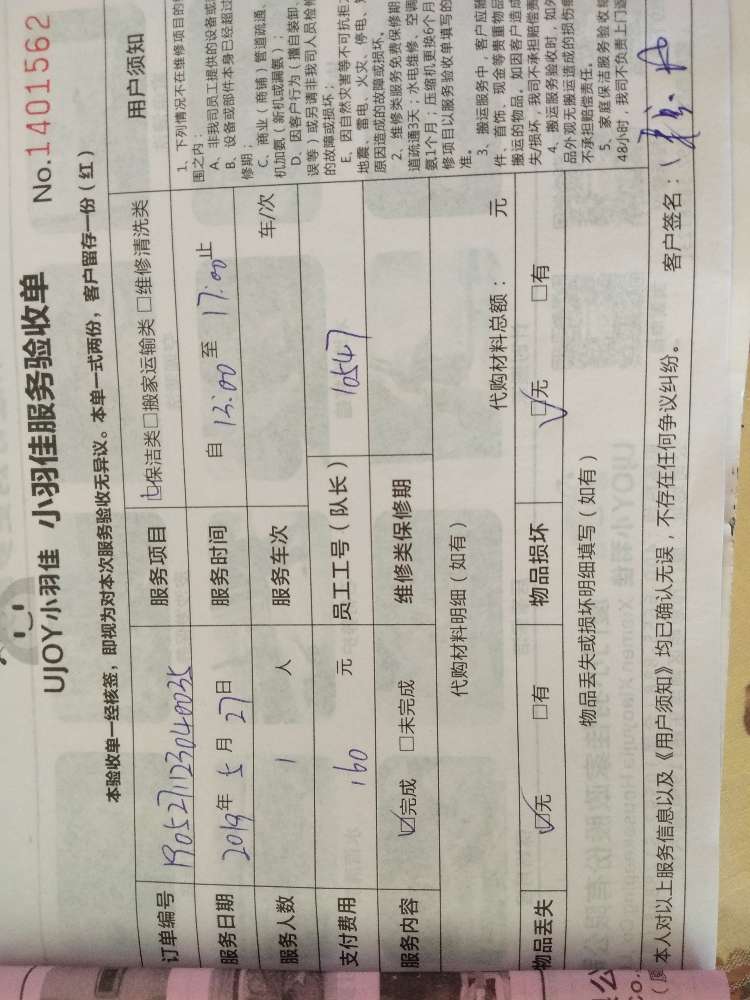 UJOY小羽佳 小羽佳服务验收单 No.1401562
本验收单一经核签，即视为对本次服务验收无异议。本单一式两份，客户留存一份（红）
订单编号 1905271123040035 服务项目 □保洁类□搬家运输类 □维修清洗类
服务日期 2019年5月27日 服务时间 自 13:00 至 17:00 止
服务人数 1 人 服务车次 车/次
支付费用 160 元 员工工号（队长） 10547
服务内容 ☑完成 □未完成 维修类保修期
代购材料明细（如有） 代购材料总额： 元
物品丢失 ☑无 □有 物品损坏 ☑无 □有
物品丢失或损坏明细填写（如有）
本人对以上服务信息以及《用户须知》均已确认无误，不存在任何争议纠纷。 客户签名：
用户须知
1、下列情况不在维修项目的
围之内：
A、非我司员工提供的设备或
B、设备或部件本身已经超过
修期；
C、商业（商铺）管道疏通、
机加氨（新机或漏氨）；
D、因客户行为（擅自装卸、
误等）或另请非我司人员检修
的故障或损坏；
E、因自然灾害等不可抗拒
地震、雷电、火灾、停电、
原因造成的故障或损坏。
2、维修类服务免费保修期
道疏通3天；水电维修、空调
氨1个月；压缩机更换6个月
修项目以服务验收单填写的
准。
3、搬运服务中，客户应随
件、首饰、现金等贵重物品
搬运的物品。如因客户造成
失/损坏，我司不承担赔偿责
4、搬运服务验收时，如外
品外观无搬运造成的损伤
不承担赔偿责任。
5、家庭保洁服务验收
48小时，我司不负责上门返